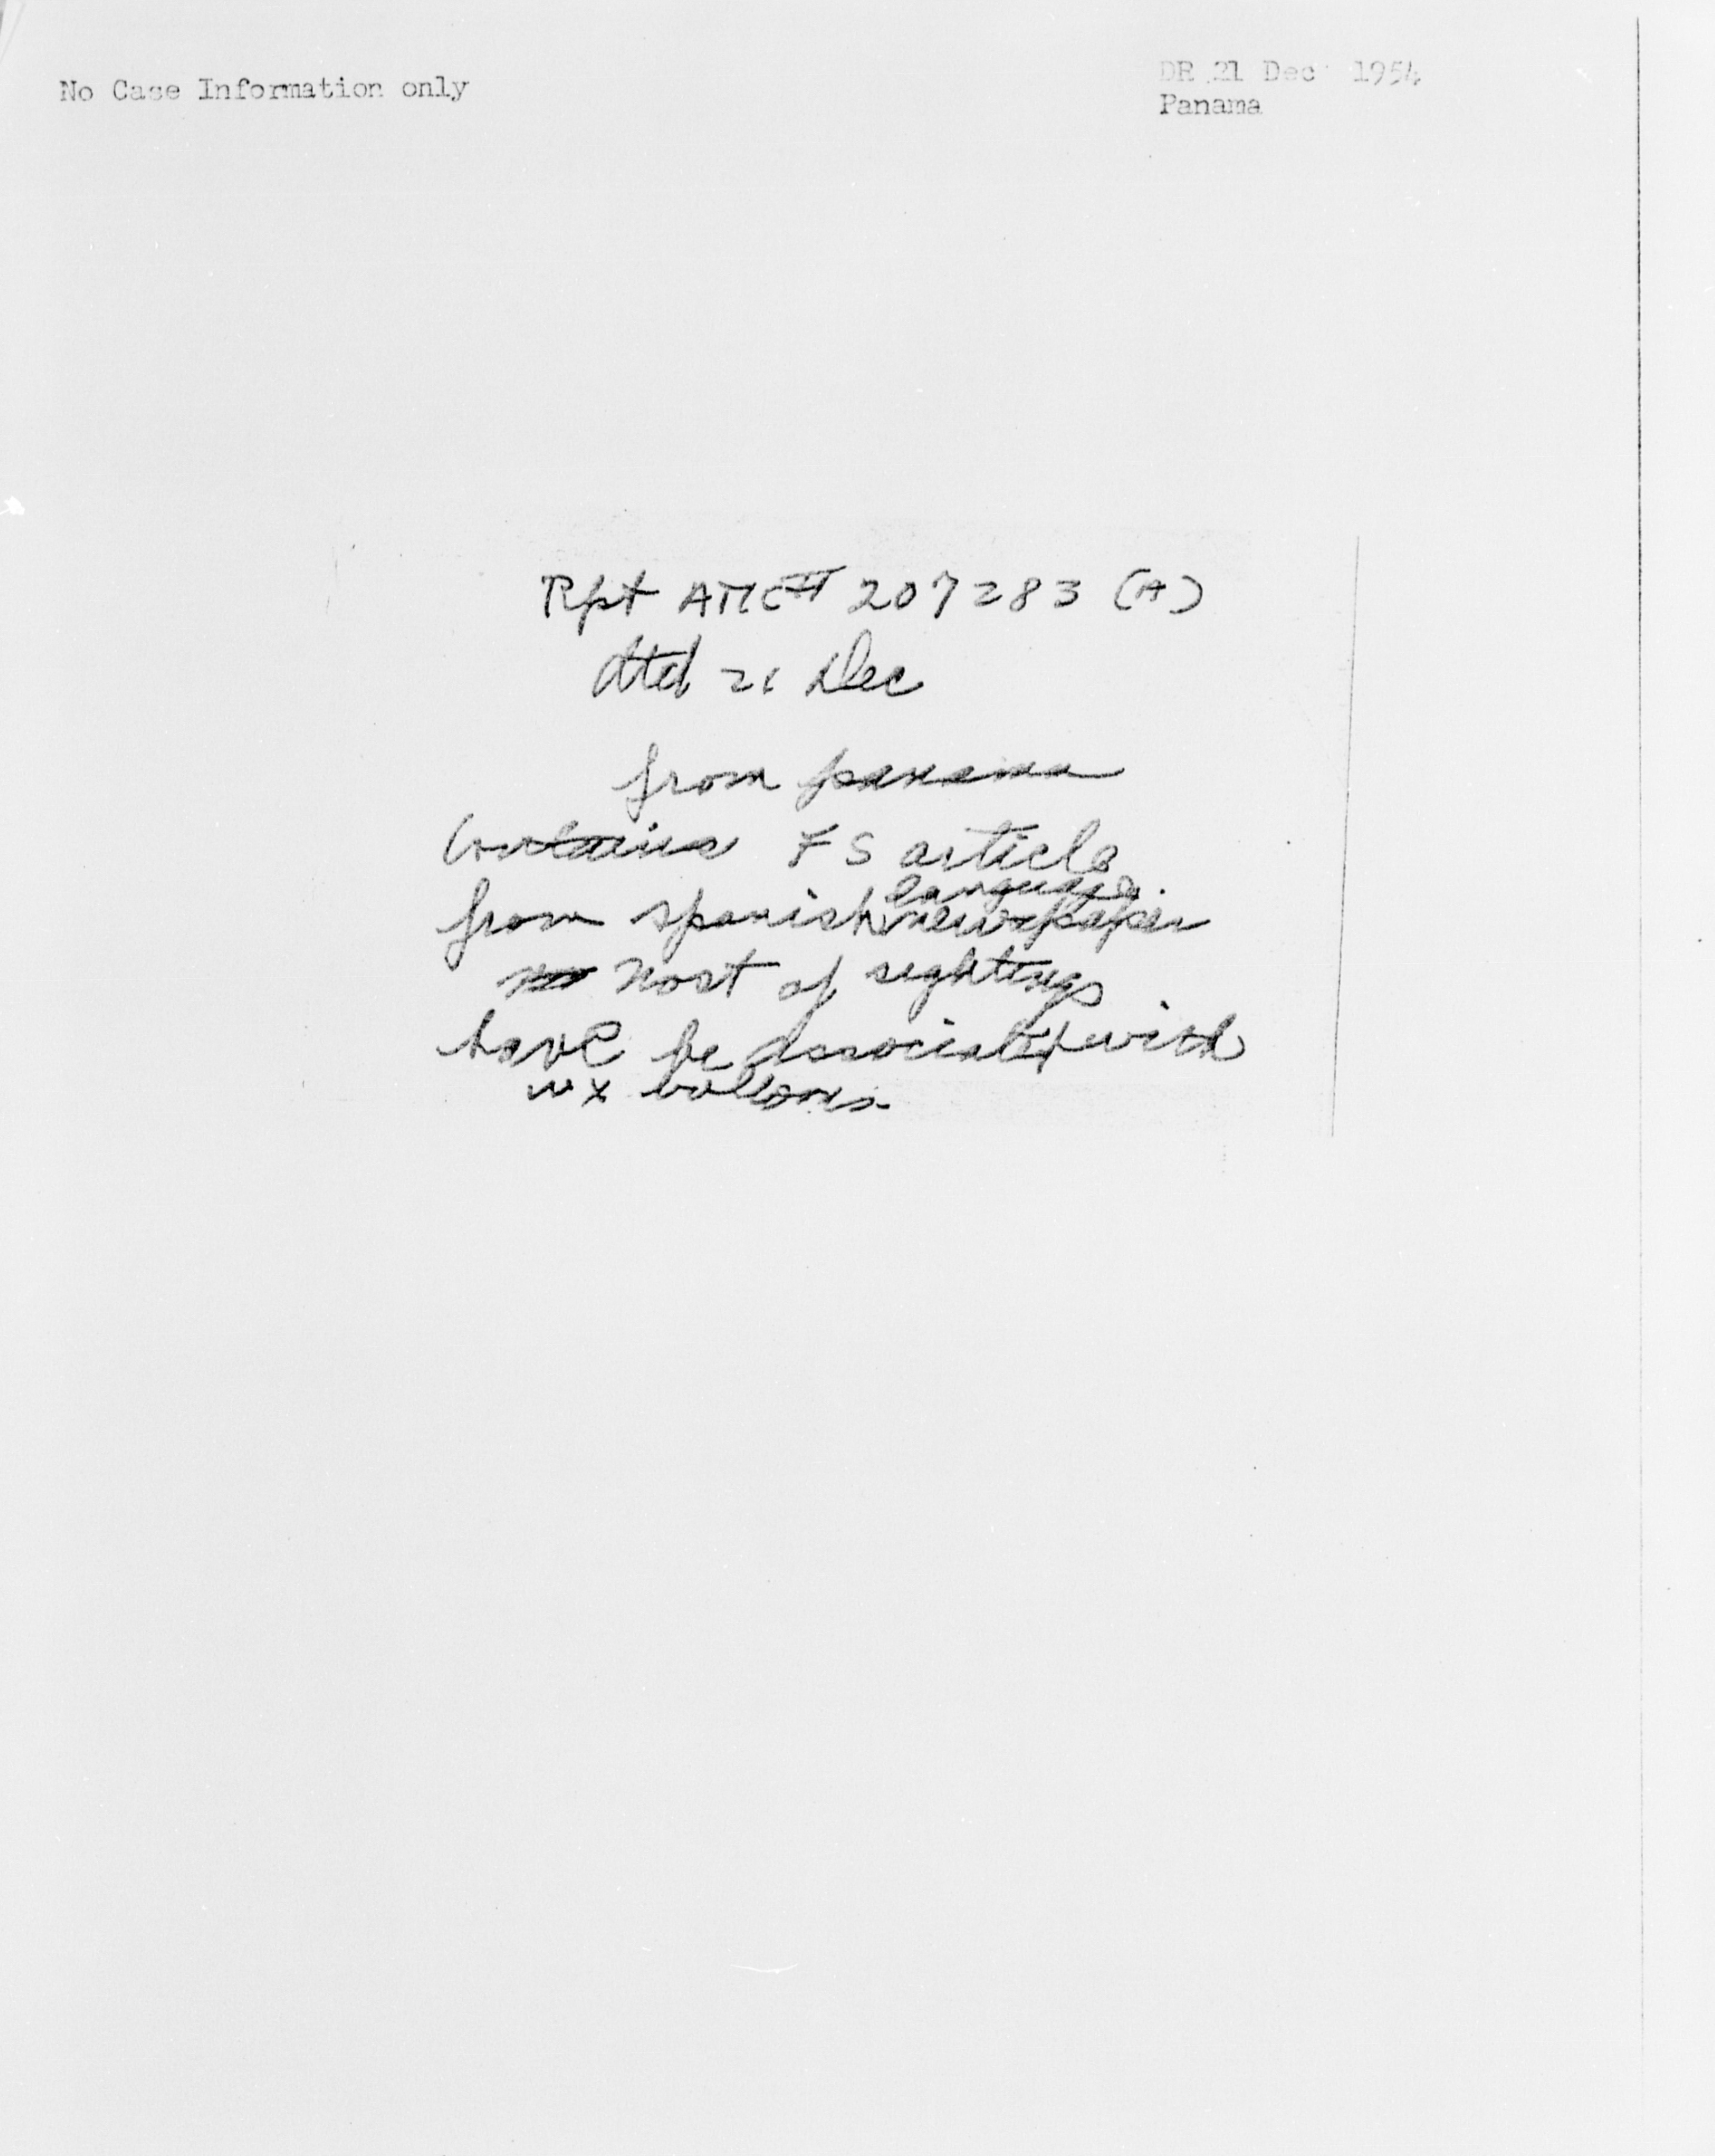 No Case Information only
DR 21 Dec 1954
Panama
Rpt AMC# 207283 (A)
dtd 21 Dec
from panama
Contains FS article
from spanish language newspaper
Most of sightings
have be associated with
wx ballons.